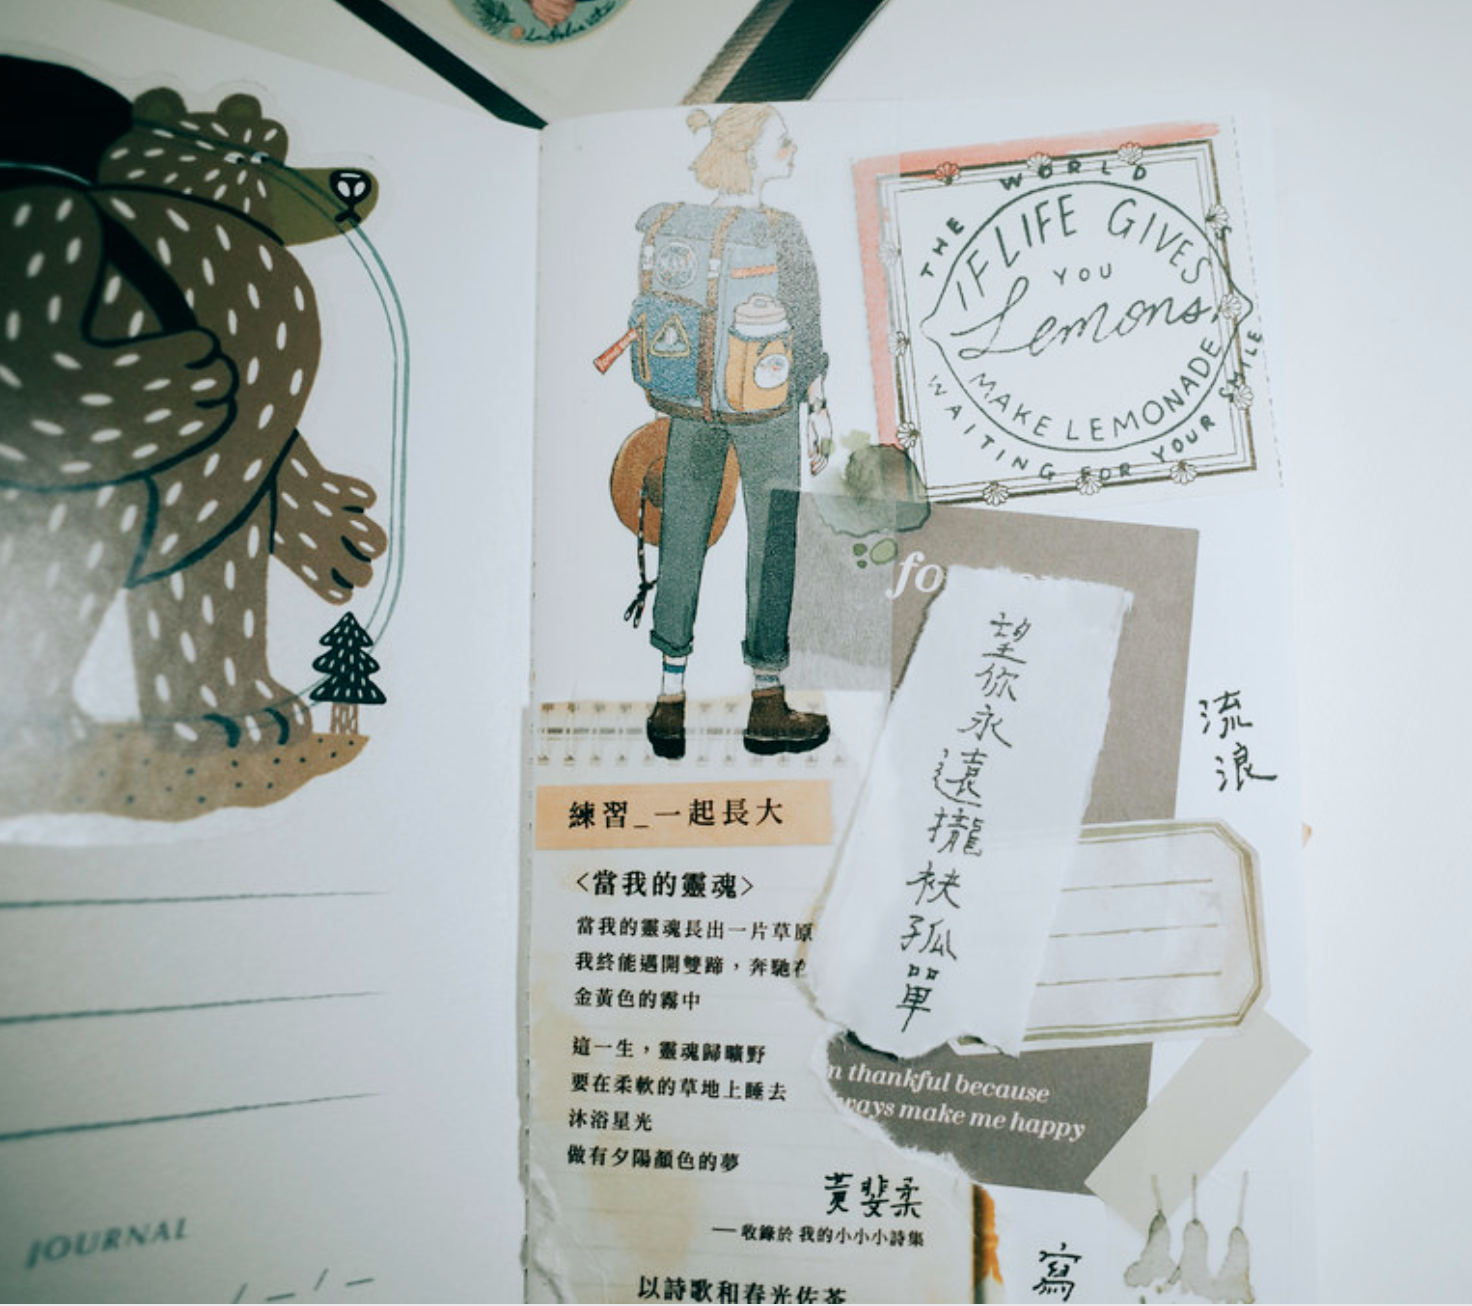 JOURNAL
THE WORLD
IF LIFE GIVES
YOU
Lemons,
MAKE LEMONADE
WAITING FOR YOUR SMILE
fo
望你永遠攏袂孤單
流浪
練習_一起長大
<當我的靈魂>
當我的靈魂長出一片草原
我終能邁開雙蹄，奔馳在
金黃色的霧中
這一生，靈魂歸曠野
要在柔軟的草地上睡去
沐浴星光
做有夕陽顏色的夢
黃斐柔
——收錄於 我的小小小詩集
以詩歌和春光佐茶
n thankful because
ways make me happy
寫